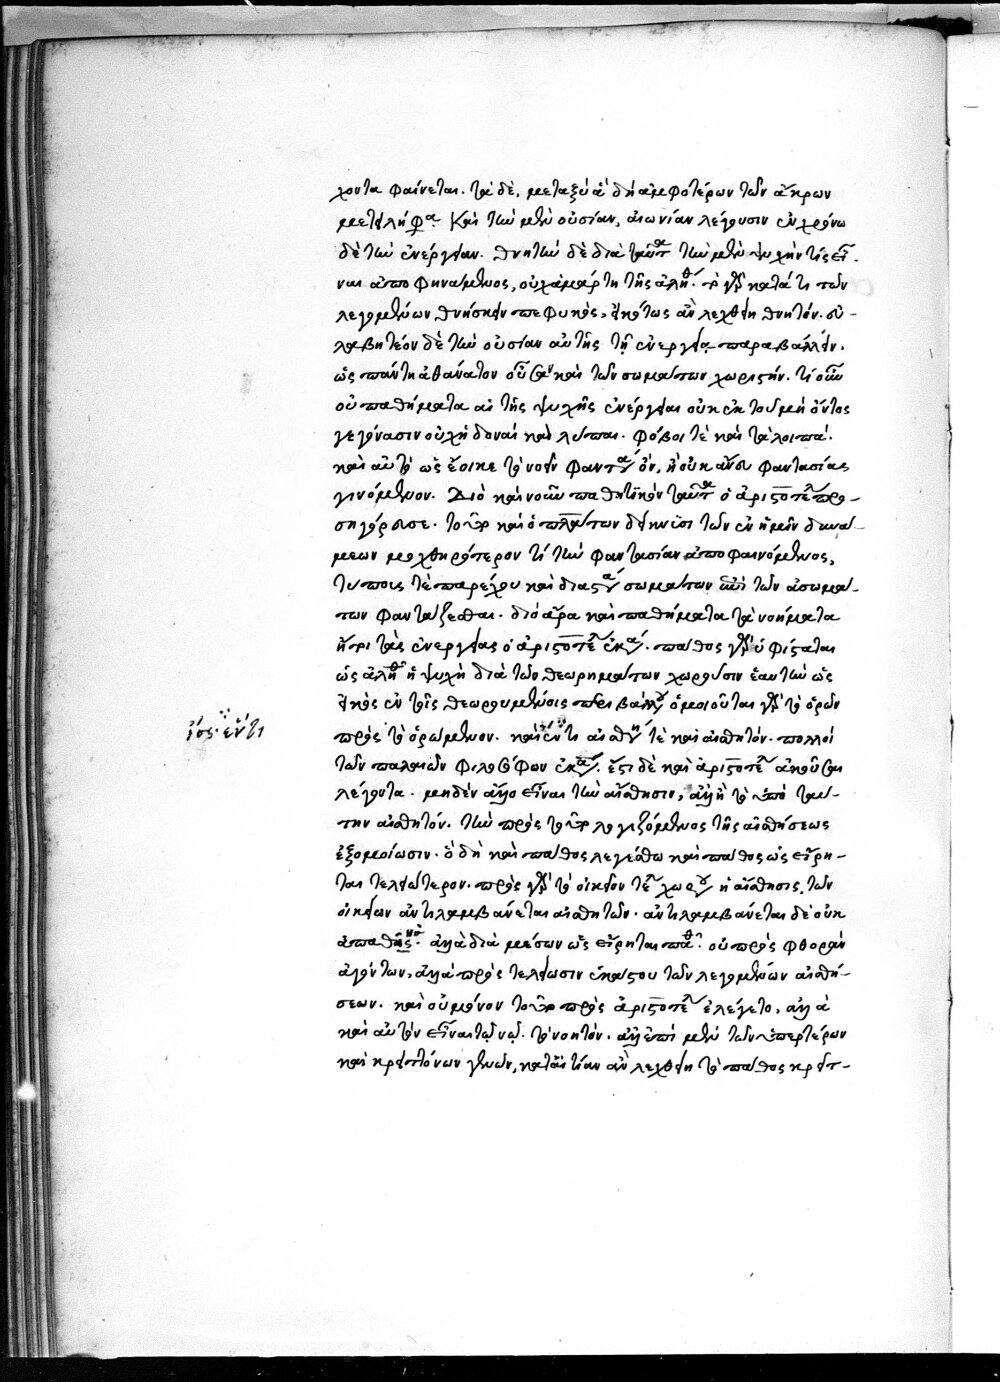 χοντα φαίνεται. τὰ δὲ, μεταξύ ἃ δὴ ἀμφοτέρων τῶν ἄκρων
μετείληφα. Καὶ τὴν μὲν οὐσίαν, αἰωνίαν λέγουσιν ἐν χρόνω
δὲ τὴν ἐνέργειαν. θνητὴν δὲ διὰ ταῦτα τὴν μὲν ψυχήν τίς εἶ-
ναι ἀποφηνάμενος, οὐχ ἁμάρτη τῆς ἀληθ. τὸ γὰρ κατά τι τῶν
λεγομένων θνήσκειν πεφυκός, εἰκότως ἂν λεχθείη θνητόν. οὐ-
βλητέον δὲ τὴν οὐσίαν αὐτῆς τῇ ἐνεργείᾳ παραβάλλειν.
ὡς πάντη ἀθάνατον οὖσαν καὶ τῶν σωμάτων χωριστήν. τί οὖν
οὐ παθήματα αἱ τῆς ψυχῆς ἐνέργειαι οὐκ ἐκ τοῦ μὴ ὄντος
γεγόνασιν οὐχ ἡδοναὶ καὶ λύπαι. φόβοι τὲ καὶ τὰ λοιπά.
καὶ αὐτὸ ὡς ἔοικε τὸ νοεῖν φαντ ὄν, ἢ οὐκ ἄνευ φαντασίας
γινόμενον. Διὸ καὶ νοῦν παθητικὸν ταῦτα ὁ ἀριστοτέλ προ-
σηγόρευσε. τοῦτο καὶ ὁ πλάτων δείκνυσι τῶν ἐν ἡμῖν δυνά-
μεων μοχθηρότερον τί τὴν φαντασίαν ἀποφαινόμενος,
τύπους τὲ παρέχου καὶ διας σωμάτων ἐπὶ τῶν ἀσωμά-
των φαντάζεσθαι. διὸ ἄρα καὶ παθήματα τὰ νοήματα
ἤτοι τὰς ἐνεργείας ὁ ἀριστοτέλ ἐκάλ. πάθος γὰρ ὑφίσταται
ὡς ἀληθ ἡ ψυχὴ διὰ τῶν θεωρημάτων χωροῦσιν ἑαυτὴν ὡς
εἰκὸς ἐν τοῖς θεωρουμένοις περιβάλλ ὁμοιοῦται γὰρ τὸ ὁρῶν
πρὸς τὸ ὁρώμενον. καὶ ἐν τι αἰσθη τὲ καὶ αἰσθητόν. πολλοὶ
τῶν παλαιῶν φιλοσόφων ἐκάλ. ἔστι δὲ καὶ ἀριστοτέλ ἀκοῦσαι
λέγοντα. μηδὲν ἄλλο εἶναι τὴν αἴσθησιν, ἀλλ ἢ τὸ ὑπὸ ταύ-
την αἰσθητόν. τὴν πρὸς τοῦτο λογιζόμενος τῆς αἰσθήσεως
ἐξομοίωσιν. ὃ δὴ καὶ πάθος λεγέσθω καὶ πάθος ὡς εἴρη-
ται τελειότερον. πρὸς γὰρ τὸ οἰκεῖον τέλ χωρ ἡ αἴσθησις, τῶν
οἰκείων ἀντιλαμβάνεται αἰσθητῶν. ἀντιλαμβάνεται δὲ οὐκ
ἀπαθῶς. ἀλλὰ διὰ μέσων ὡς εἴρηται παθ. οὐ πρὸς φθορὰν
ἀγόντων, ἀλλὰ πρὸς τελείωσιν ἑκάστου τῶν λεγομένων αἰσθή-
σεων. καὶ οὐ μόνον τοῦτο πρὸς ἀριστοτέλ ἐλέγετο, ἀλλὰ
καὶ αὐτὸν εἶναι τῷ νῷ. τὸ νοητόν. ἀλλ ἐπὶ μὲν τῶν ὑπερτέρων
καὶ κρειττόνων γενῶν, κατ᾽ αἰτίαν ἂν λεχθείη τὸ πάθος κρειτ-
ἴσ. ἕν τι